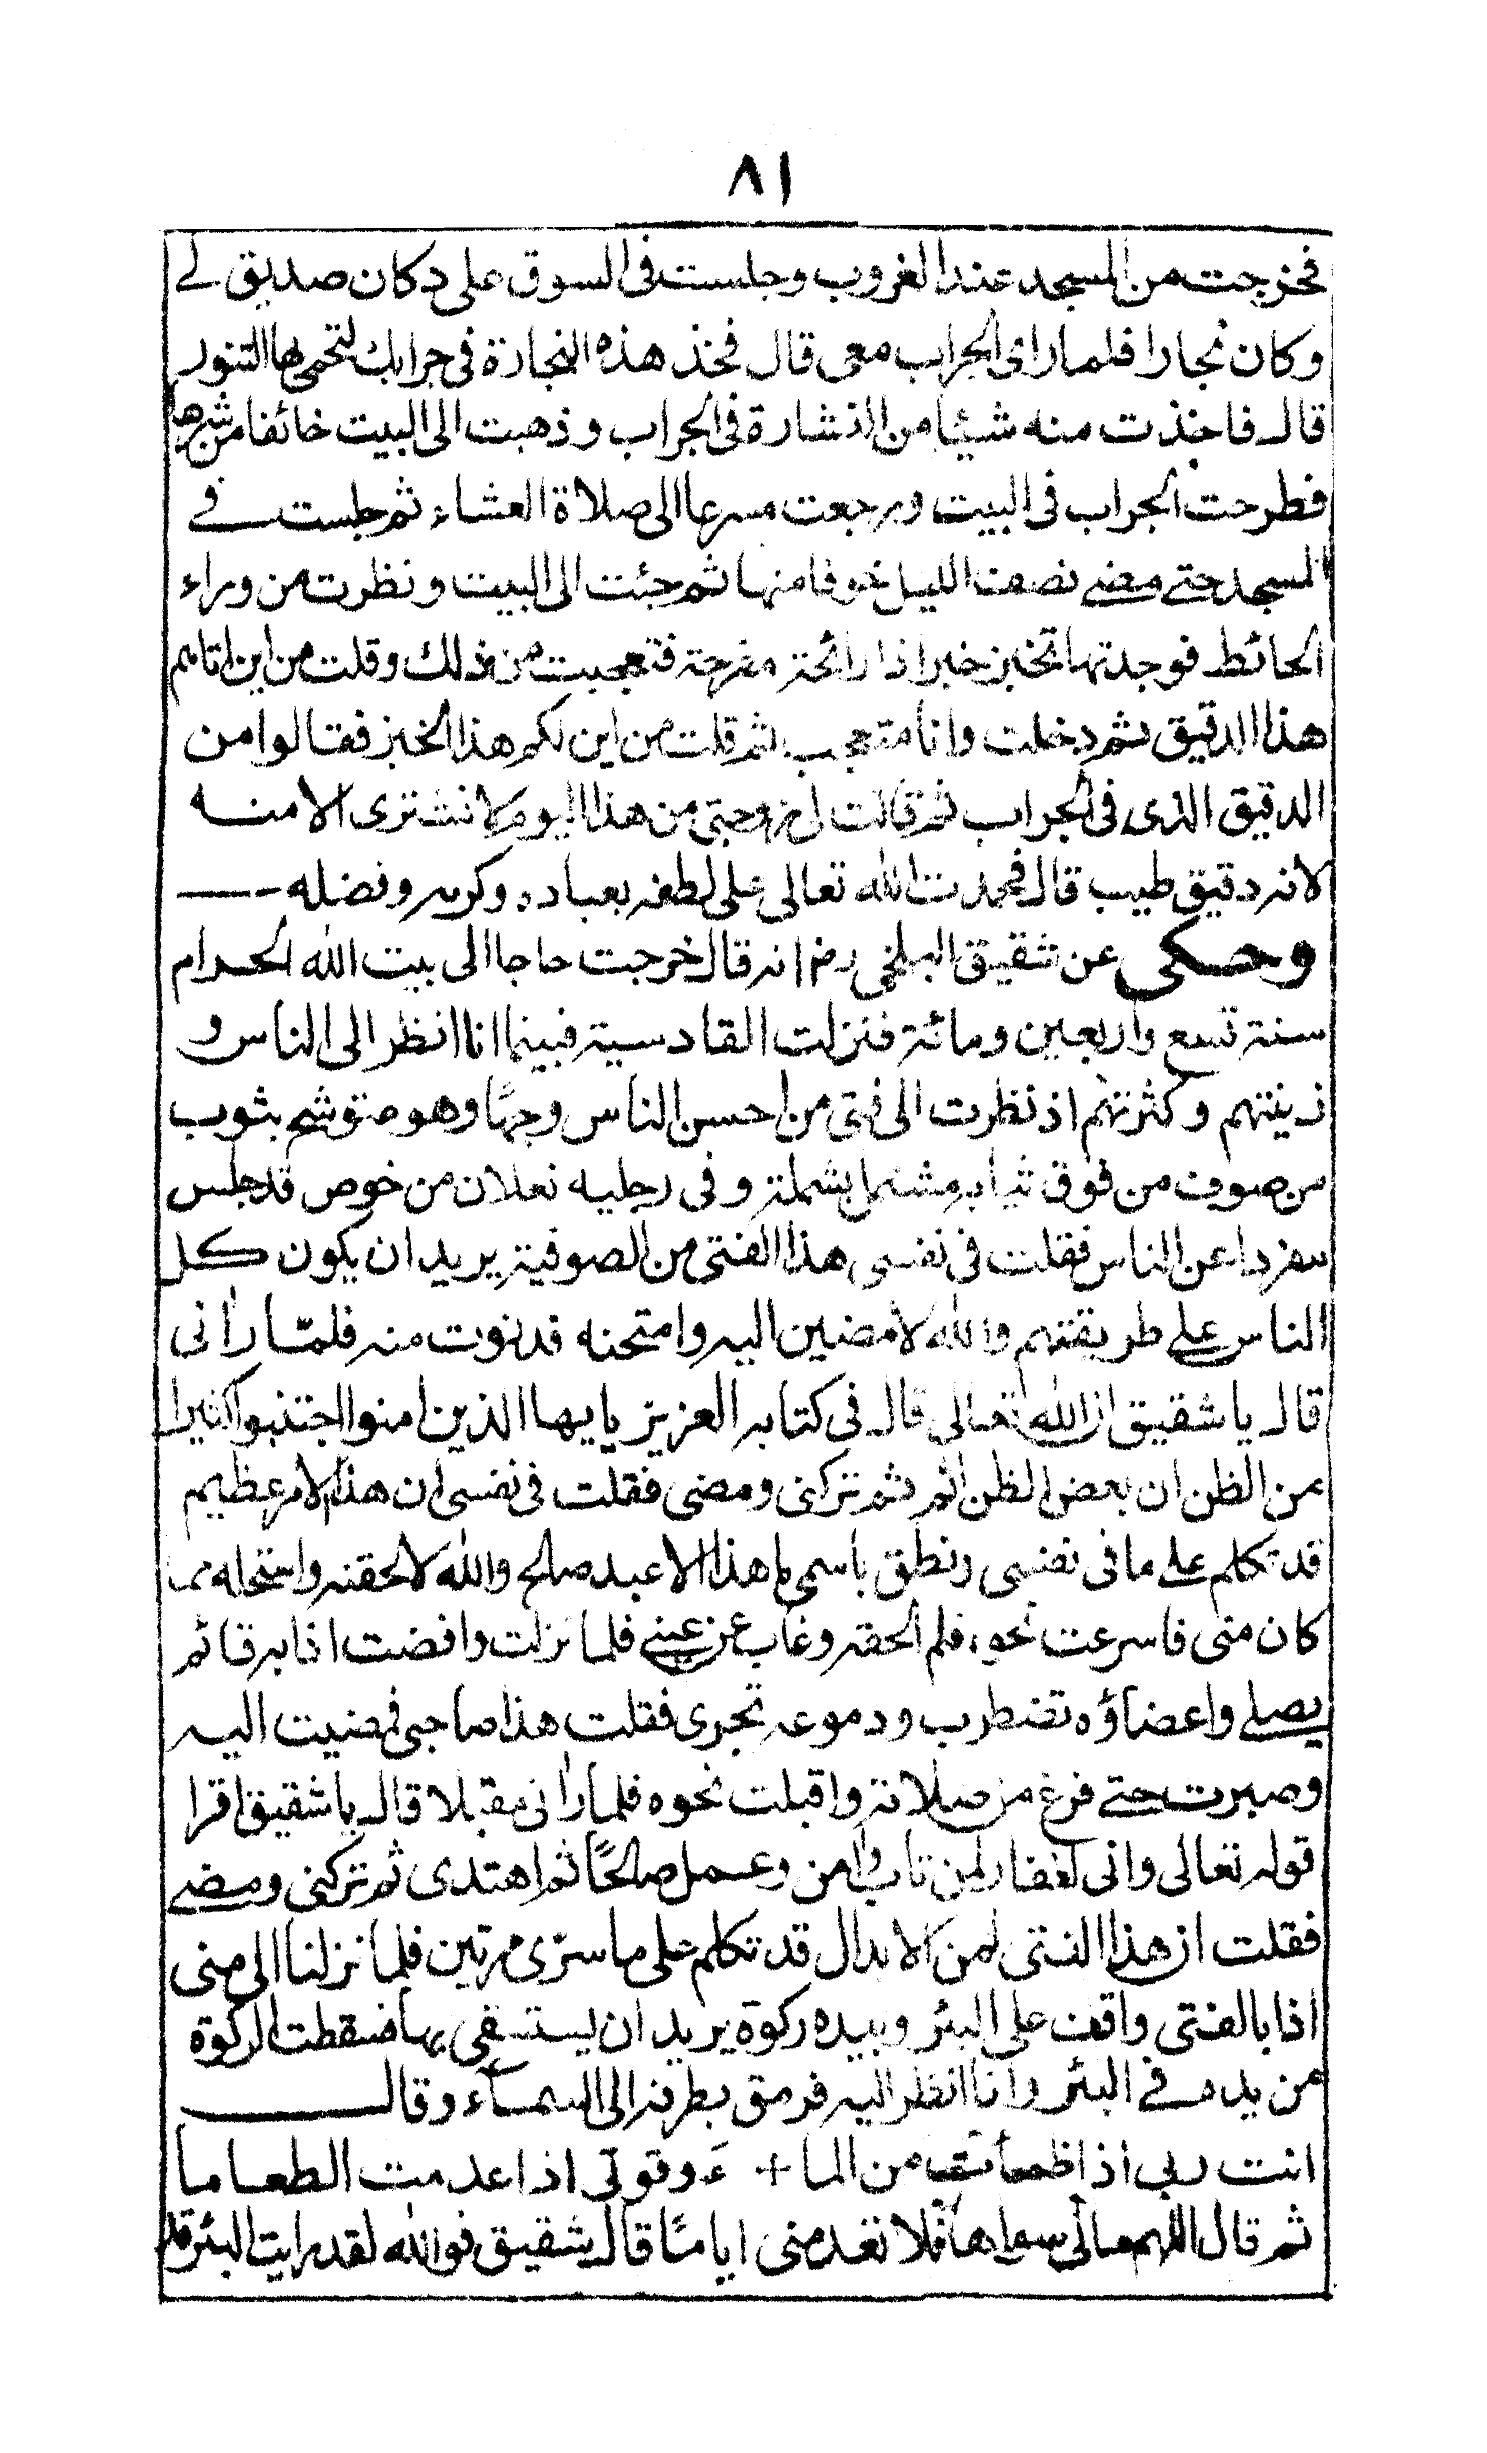 ٨١
فخرجت من المسجد عند الغروب وجلست فى السوق على دكان صديق لے
وكان نجارا فلما راى الجراب معى قال فخذ هذه النجارة فى جرابك لتحمى بها التنور
قال فاخذت منه شيئا من النشارة فى الجراب وذهبت الى البيت خائفا من شرها
فطرحت الجراب فى البيت ورجعت مسرعا الى صلاة العشاء ثم جلست فے
المسجد حتے مضے نصف الليل خوفا منها ثم جئت الى البيت ونظرت من وراء
الحائط فوجدتها تخبز خبزا ذا رائحة مفرحة فتعجبت من ذلك وقلت من اين اتاهم
هذا الدقيق ثم دخلت وانا متعجب ثم قلت من اين لكم هذا الخبز فقالوا من
الدقيق الذى فى الجراب ثم قالت لى زوجتى من هذا اليوم لا نشترى الا منه
لانه دقيق طيب قال فحمدت الله تعالى على لطفه بعباده وكرمه وفضله
وحكى عن شقيق البلخى رضم انه قال خرجت حاجا الى بيت الله الحرام
سنة تسع واربعين ومائة فنزلت القادسية فبينما انا انظر الى الناس و
زينتهم وكثرتهم اذ نظرت الى فتى من احسن الناس وجهًا وهو متوشح بثوب
من صوف من فوق ثيابه مشتمل بشملة وفى رجليه نعلان من خوص قد جلس
منفردا عن الناس فقلت فى نفسى هذا الفتى من الصوفية يريد ان يكون كل
الناس علے طريقتهم والله لامضين اليه وامتحنه فدنوت منه فلمّا رانى
قال يا شقيق ان الله تعالى قال فى كتابه العزيز يايها الذين امنوا اجتنبوا كثيرا
من الظن ان بعض الظن اثم ثم تركنى ومضى فقلت فى نفسى ان هذا الامر عظيم
قد تكلم علے ما فى نفسى ونطق باسمى ما هذا الا عبد صالح والله لالحقنه واستحله مما
كان منى فاسرعت نحوه فلم الحقه وغاب عن عينے فلما نزلت وافضت اذا به قائم
يصلے واعضاؤه تضطرب ودموعه تجرى فقلت هذا صاحبى فمضيت اليه
وصبرت حتے فرغ من صلاته واقبلت نحوه فلما رانى مقبلا قال يا شقيق اقرا
قوله تعالى وانى لغفار لمن تاب وامن وعمل صالحًا ثم اهتدى ثم تركنى ومضے
فقلت ان هذا الفتى لمن الابدال قد تكلم على ما سرّى مرتين فلما نزلنا الى منى
اذا بالفتى واقف على البئر وبيده ركوة يريد ان يستسقى بها فسقطت الركوة
من يده فے البئر وانا انظر اليه فرمق بطرفه الى السمآء وقال
انت ربى اذا ظمأت من الما + ء وقوتى اذا عدمت الطعاما
ثم قال اللهم مالى سواها فلا تعدمنى اياها قال شقيق فوالله لقد رايت البئر قد